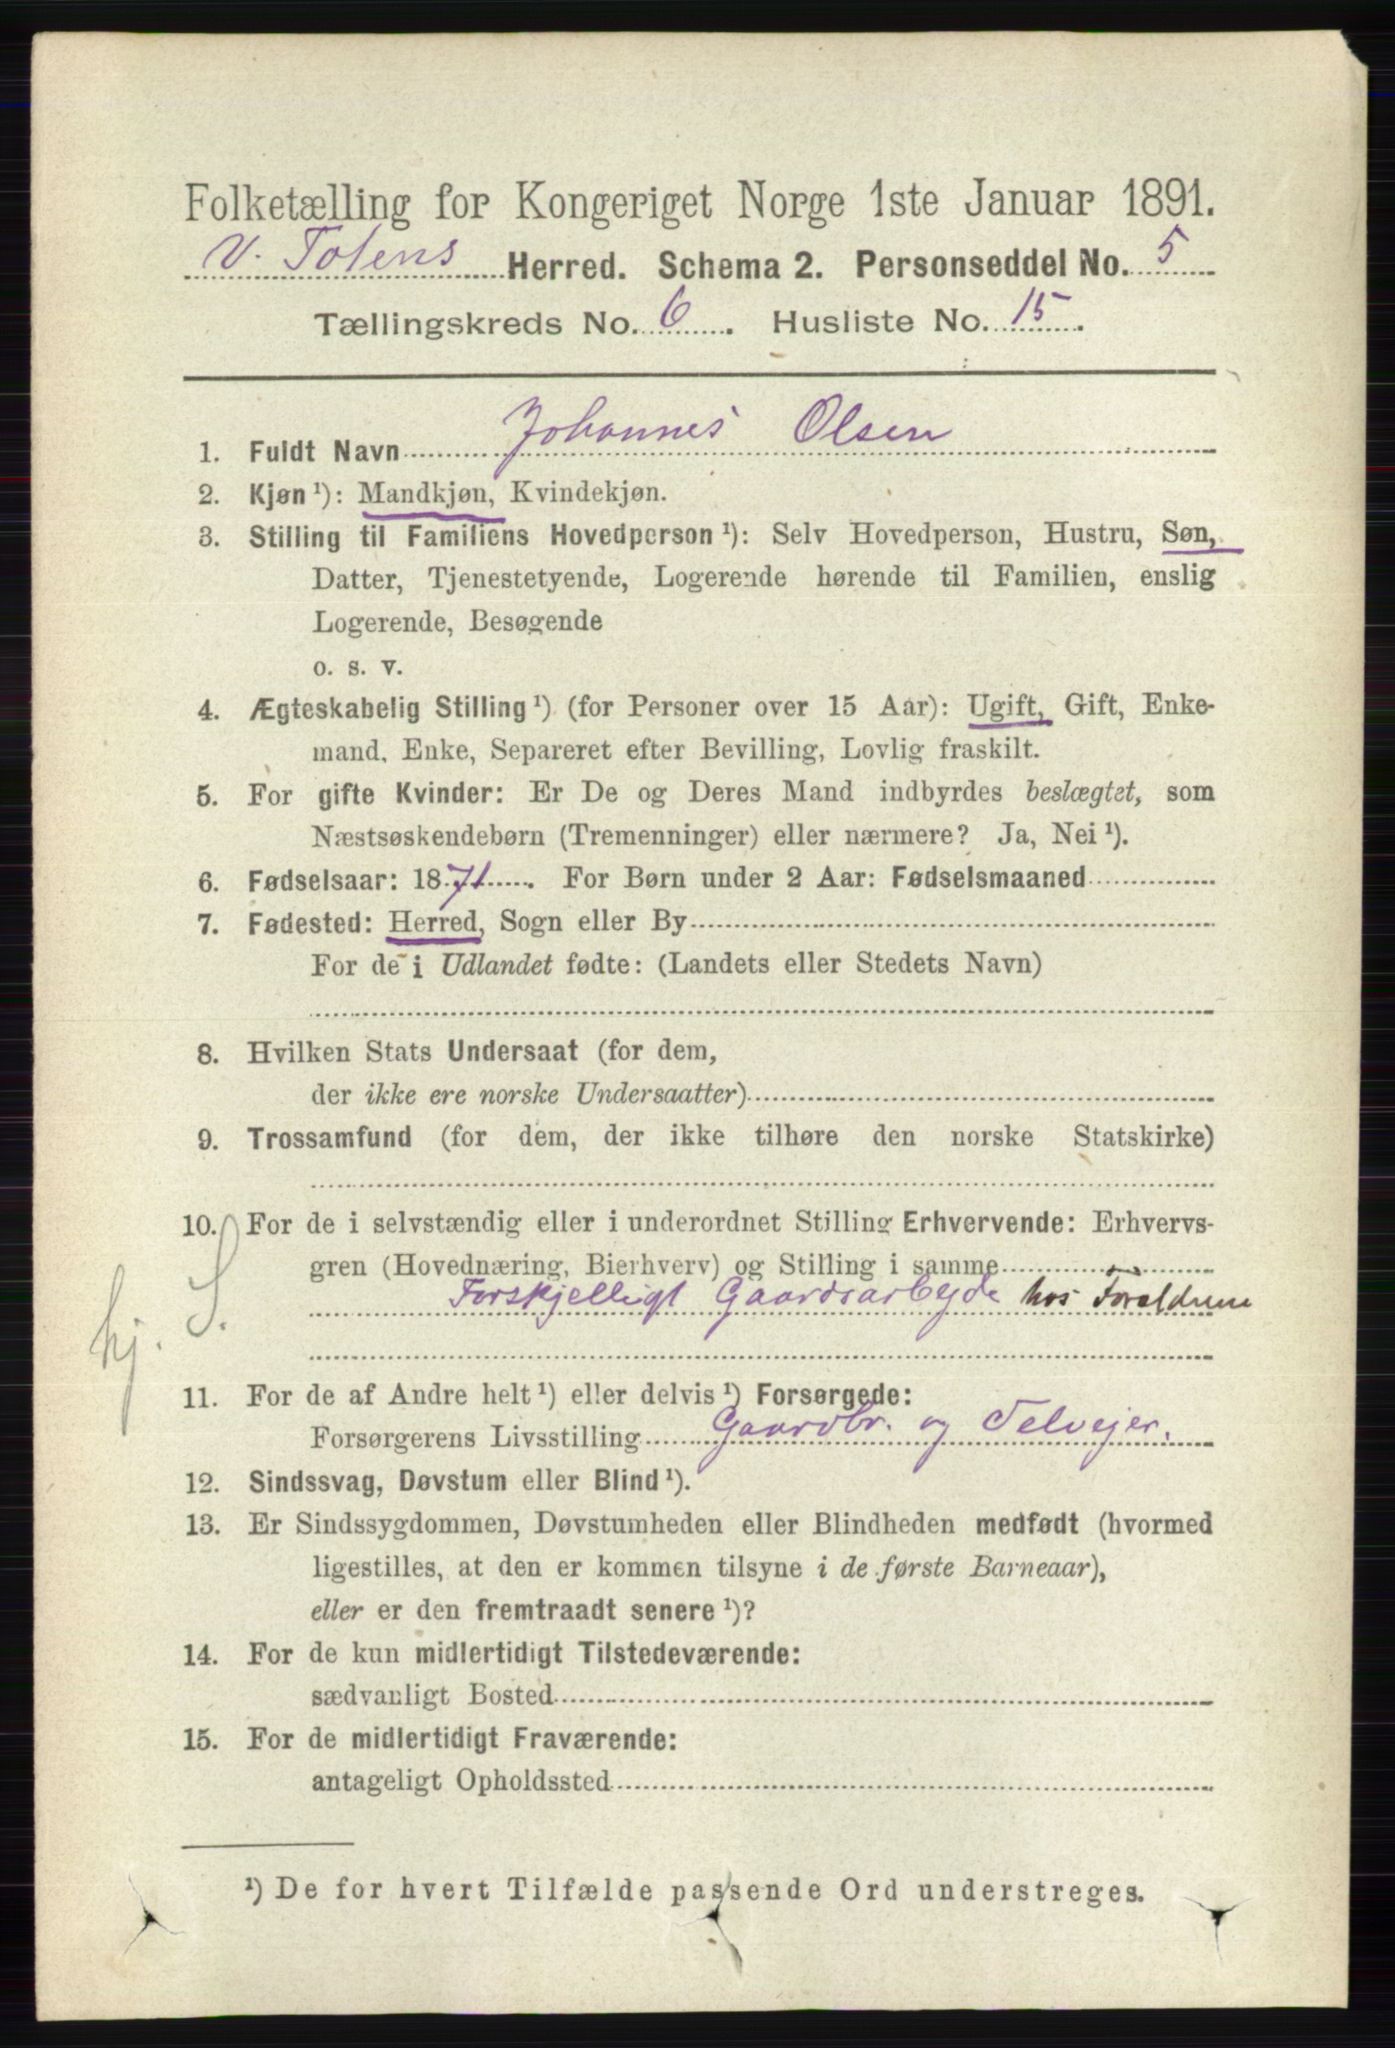 Folketælling for Kongeriget Norge 1ste Januar 1891.
V. Totens Herred. Schema 2. Personseddel No. 5
Tællingskreds No. 6. Husliste No. 15.
1. Fuldt Navn Johannes Olsen
2. Kjøn ¹): Mandkjøn, Kvindekjøn.
3. Stilling til Familiens Hovedperson ¹): Selv Hovedperson, Hustru, Søn,
Datter, Tjenestetyende, Logerende hørende til Familien, enslig
Logerende, Besøgende
o. s. v.
4. Ægteskabelig Stilling ¹) (for Personer over 15 Aar): Ugift, Gift, Enke-
mand, Enke, Separeret efter Bevilling, Lovlig fraskilt.
5. For gifte Kvinder: Er De og Deres Mand indbyrdes beslægtet, som
Næstsøskendebørn (Tremenninger) eller nærmere? Ja, Nei ¹).
6. Fødselsaar: 1871. For Børn under 2 Aar: Fødselsmaaned
7. Fødested: Herred, Sogn eller By
For de i Udlandet fødte: (Landets eller Stedets Navn)
8. Hvilken Stats Undersaat (for dem,
der ikke ere norske Undersaatter)
9. Trossamfund (for dem, der ikke tilhøre den norske Statskirke)
10. For de i selvstændig eller i underordnet Stilling Erhvervende: Erhvervs-
gren (Hovednæring, Bierhverv) og Stilling i samme
Forskjelligt Gaardsarbejde hos Forældrene
hj. S.
11. For de af Andre helt ¹) eller delvis ¹) Forsørgede:
Forsørgerens Livsstilling Gaardbr. og Selvejer.
12. Sindssvag, Døvstum eller Blind ¹).
13. Er Sindssygdommen, Døvstumheden eller Blindheden medfødt (hvormed
ligestilles, at den er kommen tilsyne i de første Barneaar),
eller er den fremtraadt senere ¹)?
14. For de kun midlertidigt Tilstedeværende:
sædvanligt Bosted
15. For de midlertidigt Fraværende:
antageligt Opholdssted
¹) De for hvert Tilfælde passende Ord understreges.